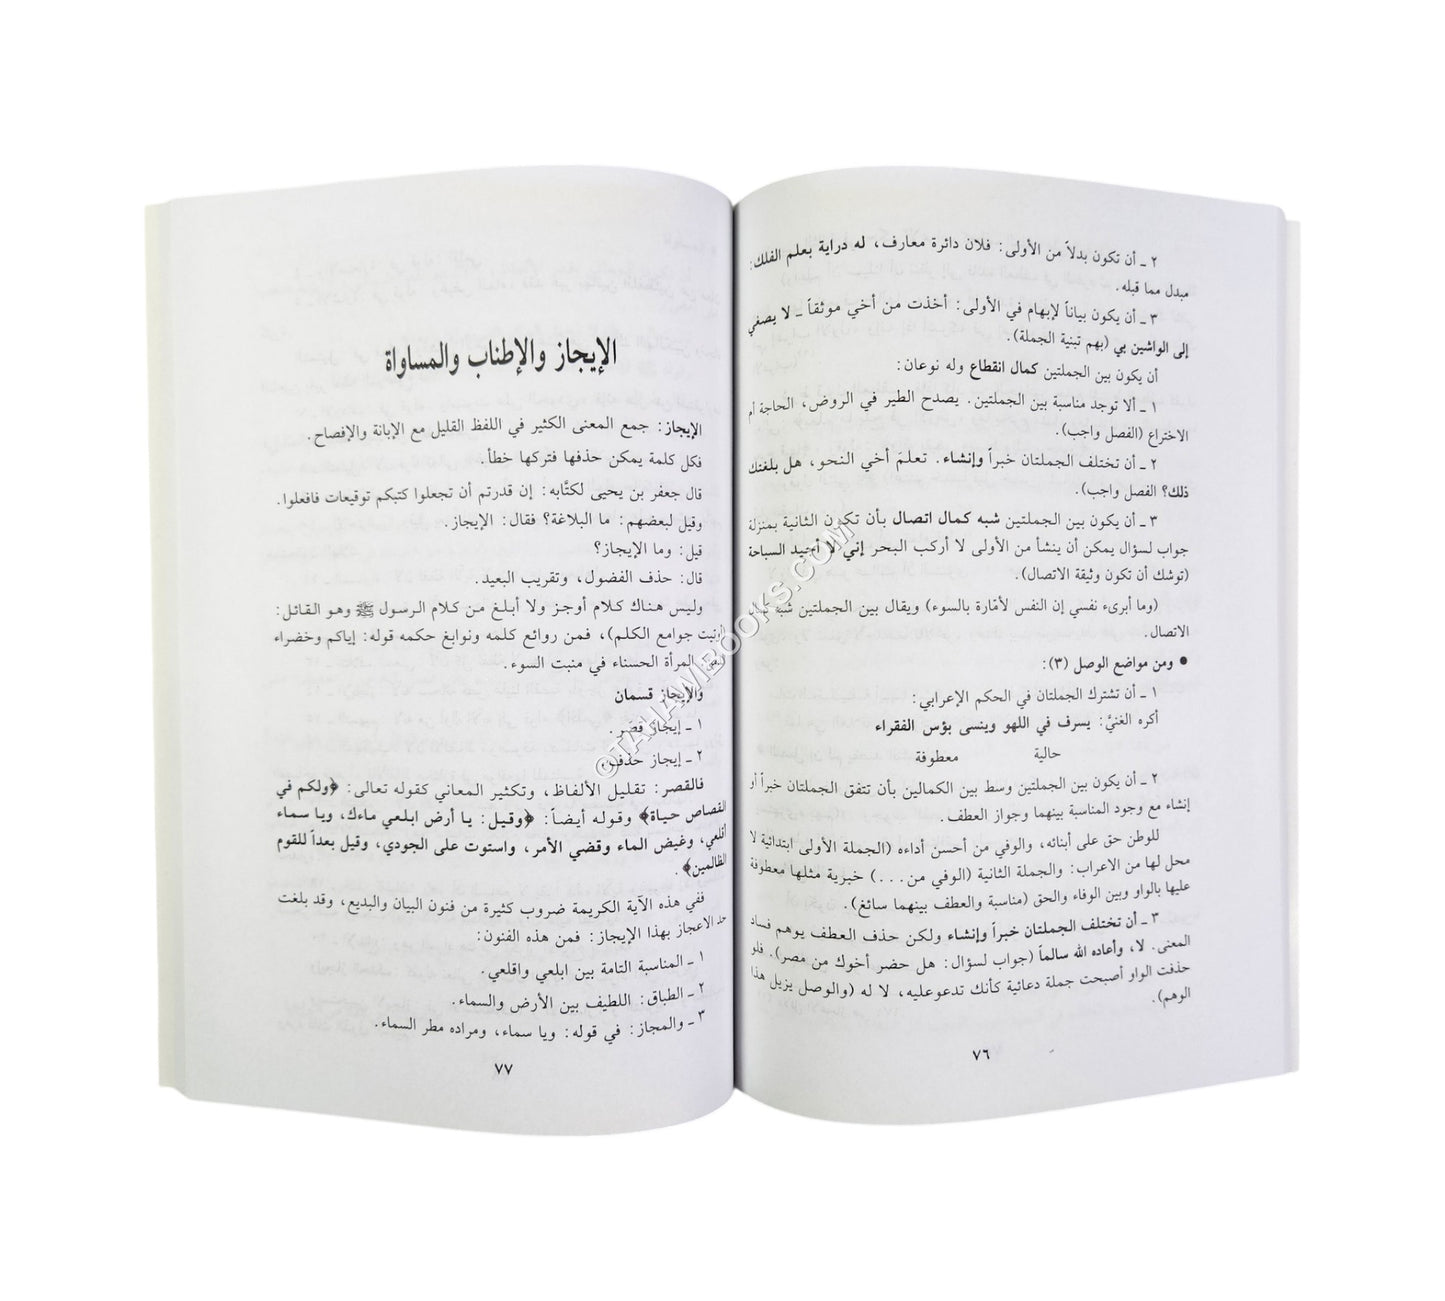 ٢ ـ أن تكون بدلاً من الأولى: فلان دائرة معارف، له دراية بعلم الفلك:
مبدل مما قبله.
٣ ـ أن يكون بياناً لإبهام في الأولى: أخذت من أخي موثقاً ـ لا يصغي
إلى الواشين بي (بهم تبنية الجملة).
أن يكون بين الجملتين كمال انقطاع وله نوعان:
١ ـ ألا توجد مناسبة بين الجملتين. يصدح الطير في الروض، الحاجة أم
الاختراع (الفصل واجب).
٢ ـ أن تختلف الجملتان خبراً وإنشاء. تعلمَ أخي النحو، هل بلغتك
ذلك؟ الفصل واجب).
٣ ـ أن يكون بين الجملتين شبه كمال اتصال بأن تكون الثانية بمنزلة
جواب لسؤال يمكن أن ينشأ من الأولى لا أركب البحر إني لا أجيد السباحة
(توشك أن تكون وثيقة الاتصال).
(وما أبرىء نفسي إن النفس لأمّارة بالسوء) ويقال بين الجملتين شبه
الاتصال.
• ومن مواضع الوصل (٣):
١ ـ أن تشترك الجملتان في الحكم الإعرابي:
أكره الغنيَّ: يسرف في اللهو وينسى بؤس الفقراء
حالية معطوفة
٢ ـ أن يكون بين الجملتين وسط بين الكمالين بأن تتفق الجملتان خبراً أو
إنشاء مع وجود المناسبة بينهما وجواز العطف.
للوطن حق على أبنائه، والوفي من أحسن أداءه (الجملة الأولى ابتدائية لا
محل لها من الاعراب: والجملة الثانية (الوفي من...) خبرية مثلها معطوفة
عليها بالواو وبين الوفاء والحق (مناسبة والعطف بينهما سائغ).
٣ ـ أن تختلف الجملتان خبراً وإنشاء ولكن حذف العطف يوهم فساد
المعنى. لا، وأعاده الله سالماً (جواب لسؤال: هل حضر أخوك من مصر). فلو
حذفت الواو أصبحت جملة دعائية كأنك تدعوعليه، لا له (والوصل يزيل هذا
الوهم).
٧٦
الإيجاز والإطناب والمساواة
الإيجاز: جمع المعنى الكثير في اللفظ القليل مع الإبانة والإفصاح.
فكل كلمة يمكن حذفها فتركها خطأ.
قال جعفر بن يحيى لكتَّابه: إن قدرتم أن تجعلوا كتبكم توقيعات فافعلوا.
وقيل لبعضهم: ما البلاغة؟ فقال: الإيجاز.
قيل: وما الإيجاز؟
قال: حذف الفضول، وتقريب البعيد.
وليس هناك كلام أوجز ولا أبلغ من كلام الرسول ﷺ وهو القائل:
(أوتيت جوامع الكلم)، فمن روائع كلمه ونوابغ حكمه قوله: إياكم وخضراء
المرأة الحسناء في منبت السوء.
والإيجاز قسمان
١ ـ إيجاز قصَر.
٢ ـ إيجاز حذف.
فالقصر: تقليل الألفاظ، وتكثير المعاني كقوله تعالى: ﴿ولكم في
القصاص حياة﴾ وقوله أيضاً: ﴿وقيل: يا أرض ابلعي ماءك، ويا سماء
أقلعي، وغيض الماء وقضي الأمر، واستوت على الجودي، وقيل بعداً للقوم
الظالمين﴾.
ففي هذه الآية الكريمة ضروب كثيرة من فنون البيان والبديع، وقد بلغت
حد الاعجاز بهذا الإيجاز: فمن هذه الفنون:
١ ـ المناسبة التامة بين ابلعي واقلعي.
٢ ـ الطباق: اللطيف بين الأرض والسماء.
٣ ـ والمجاز: في قوله: ويا سماء، ومراده مطر السماء.
٧٧
©TAHAMIBOOKS.COM